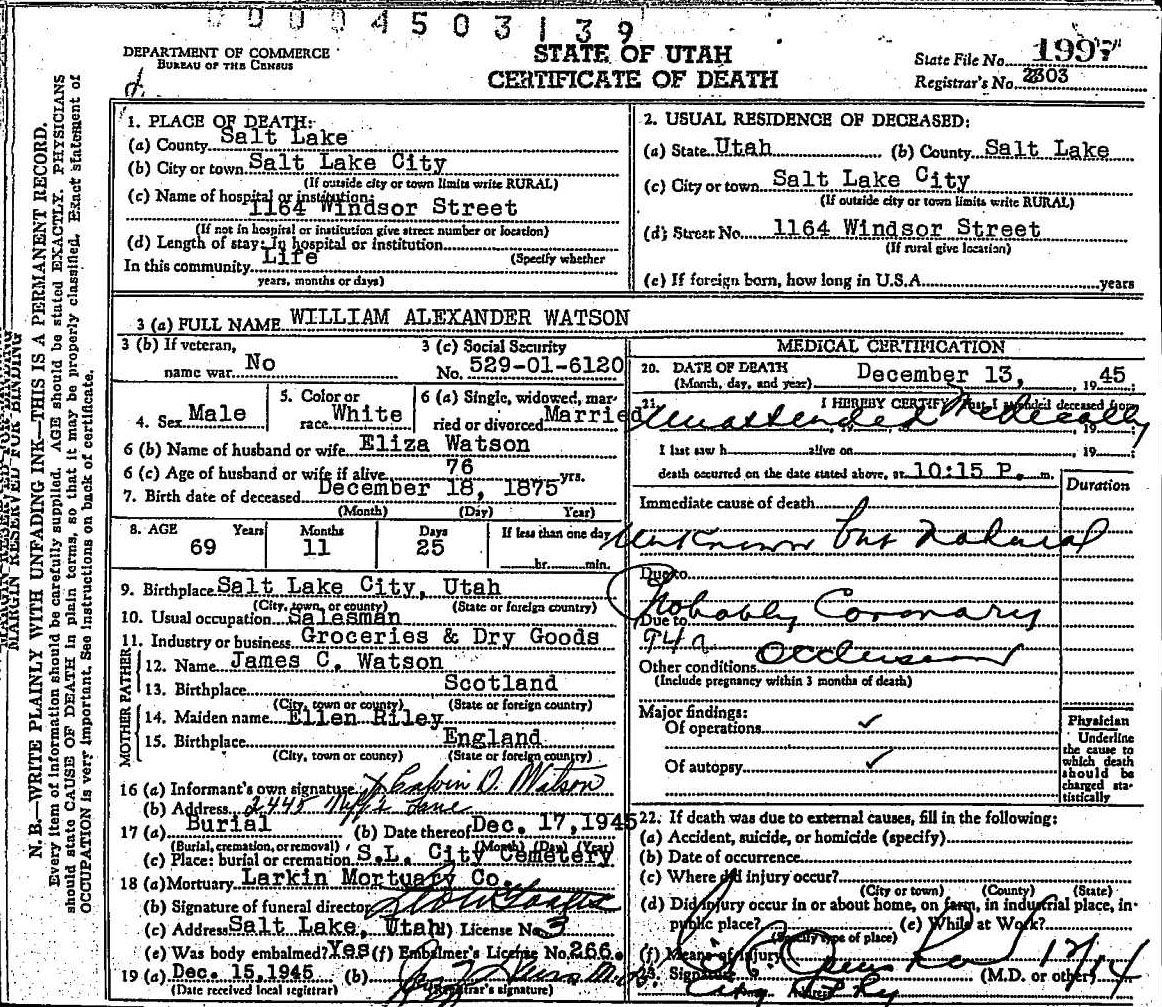 0004503139
DEPARTMENT OF COMMERCE
BUREAU OF THE CENSUS
STATE OF UTAH
CERTIFICATE OF DEATH
State File No. 1997
Registrar's No. 2303
N. B.—WRITE PLAINLY WITH UNFADING INK—THIS IS A PERMANENT RECORD.
Every item of information should be carefully supplied. AGE should be stated EXACTLY. PHYSICIANS
should state CAUSE OF DEATH in plain terms, so that it may be properly classified. Exact statement of
OCCUPATION is very important. See instructions on back of certificate.
MARGIN RESERVED FOR BINDING
1. PLACE OF DEATH:
(a) County Salt Lake
(b) City or town Salt Lake City
(If outside city or town limits write RURAL)
(c) Name of hospital or institution:
1164 Windsor Street
(If not in hospital or institution give street number or location)
(d) Length of stay: In hospital or institution
(Specify whether
In this community Life
years, months or days)
2. USUAL RESIDENCE OF DECEASED:
(a) State Utah (b) County Salt Lake
(c) City or town Salt Lake City
(If outside city or town limits write RURAL)
(d) Street No. 1164 Windsor Street
(If rural give location)
(e) If foreign born, how long in U.S.A. years
3 (a) FULL NAME WILLIAM ALEXANDER WATSON
3 (b) If veteran,
name war No
3 (c) Social Security
No. 529-01-6120
4. Sex Male
5. Color or
race White
6 (a) Single, widowed, mar-
ried or divorced Married
6 (b) Name of husband or wife Eliza Watson
6 (c) Age of husband or wife if alive 76 yrs.
7. Birth date of deceased December 18, 1875
(Month) (Day) Year)
8. AGE Years Months Days If less than one day
69 11 25
hr. min.
9. Birthplace Salt Lake City, Utah
(City, town, or county) (State or foreign country)
10. Usual occupation Salesman
11. Industry or business Groceries & Dry Goods
FATHER
12. Name James C. Watson
13. Birthplace Scotland
(City, town or county) (State or foreign country)
MOTHER
14. Maiden name Ellen Riley
15. Birthplace England
(City, town or county) (State or foreign country)
16 (a) Informant's own signature Calvin D. Watson
(b) Address 2445 Lane
17 (a) Burial (b) Date thereof Dec. 17, 1945
(Burial, cremation, or removal) (Month) (Day) (Year)
(c) Place: burial or cremation S.L. City Cemetery
18 (a) Mortuary Larkin Mortuary Co.
(b) Signature of funeral director
(c) Address Salt Lake, Utah License No. 3
(e) Was body embalmed? Yes (f) Embalmer's License No. 266
19 (a) Dec. 15, 1945 (b)
(Date received local registrar) (Registrar's signature)
MEDICAL CERTIFICATION
20. DATE OF DEATH
(Month, day, and year) December 13, 1945
21. I HEREBY CERTIFY that I attended deceased from
Unattended Medically
19
I last saw h alive on 19
death occurred on the date stated above, at 10:15 P. m.
Duration
Immediate cause of death
Unknown but Natural
Due to
Probably Coronary
Due to
94a
Occlusion
Other conditions
(Include pregnancy within 3 months of death)
Major findings:
Of operations ✓
Of autopsy ✓
Physician
Underline
the cause to
which death
should be
charged sta-
tistically
22. If death was due to external causes, fill in the following:
(a) Accident, suicide, or homicide (specify)
(b) Date of occurrence
(c) Where did injury occur?
(City or town) (County) (State)
(d) Did injury occur in or about home, on farm, in industrial place, in
public place? (e) While at Work?
(Specify type of place)
(f) Means of injury
23. Signature (M.D. or other)
12/14
City